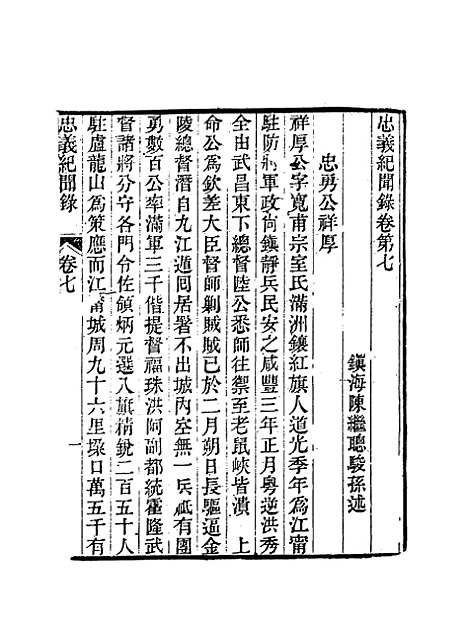 忠義紀聞錄卷第七
鎮海陳繼聰駿孫述
忠勇公祥厚
祥厚公字寬甫宗室氏滿洲鑲紅旗人道光季年為江甯
駐防將軍政尚鎮靜兵民安之咸豐三年正月粵逆洪秀
全由武昌東下總督陸公悉師往禦至老鼠峽皆潰　上
命公為欽差大臣督師剿賊賊已於二月朔日長驅逼金
陵總督潛自九江遁囘居署不出城內空無一兵祗有團
勇數百公率滿軍三千偕提督福珠洪阿副都統霍隆武
督諸將分守各門令佐領炳元選八旗精銳二百五十人
駐盧龍山為策應而江甯城周九十六里垜口萬五千有
忠義紀聞錄　卷七　一